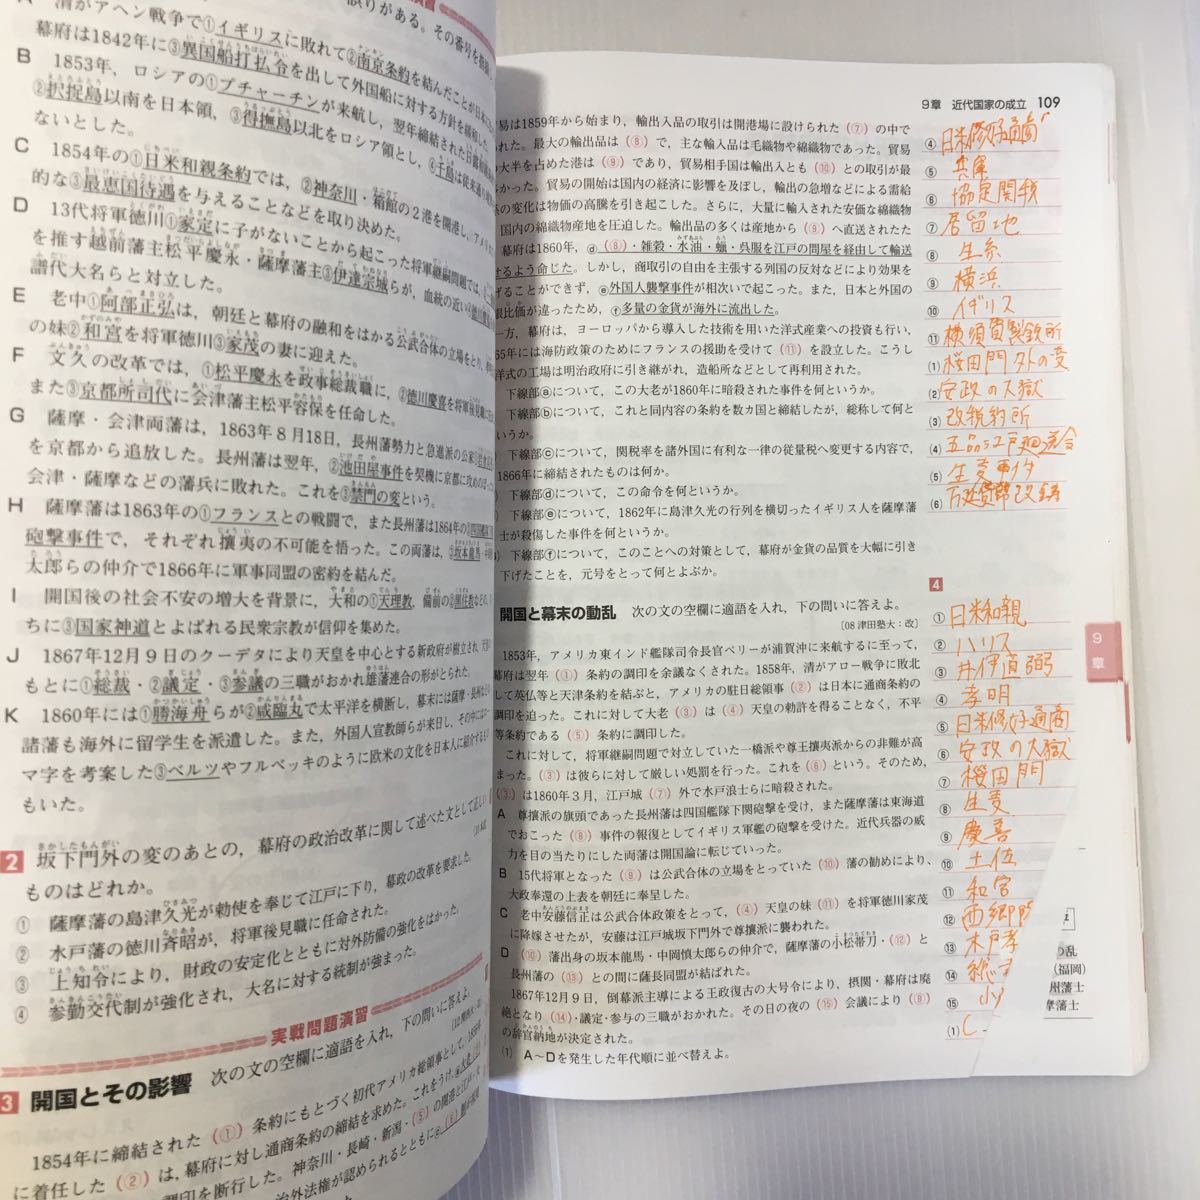 A 清がアヘン戦争で①イギリスに敗れて②南京条約を結んだことが日本に
幕府は1842年に③異国船打払令を出して外国船に対する方針を緩和した
B 1853年，ロシアの①プチャーチンが来航し，翌年締結された日露和親条約
②択捉島以南を日本領，③得撫島以北をロシア領とし，
ないとした。
C 1854年の①日米和親条約では，②神奈川・箱館の2港を開港し，アメリカ
的な③最恵国待遇を与えることなどを取り決めた。
D 13代将軍徳川①家定に子がないことから起こった将軍継嗣問題では，
を推す越前藩主松平慶永・薩摩藩主③伊達宗城らが，血統の近い
譜代大名らと対立した。
E 老中①阿部正弘は，朝廷と幕府の融和をはかる公武合体の立場をとり，
の妹②和宮を将軍徳川③家茂の妻に迎えた。
F 文久の改革では，①松平慶永を政事総裁職に，②徳川慶喜を将軍後見職に
また③京都所司代に会津藩主松平容保を任命した。
G 薩摩・会津両藩は，1863年8月18日，長州藩勢力と急進派の公家
を京都から追放した。長州藩は翌年，②池田屋事件を契機に京都に攻めのぼ
会津・薩摩などの藩兵に敗れた。これを③禁門の変という。
H 薩摩藩は1863年の①フランスとの戦闘で，また長州藩は1864年の
砲撃事件で，それぞれ攘夷の不可能を悟った。この両藩は，③坂本龍馬・
太郎らの仲介で1866年に軍事同盟の密約を結んだ。
I 開国後の社会不安の増大を背景に，大和の①天理教，備前の②黒住教などの，
ちに③国家神道とよばれる民衆宗教が信仰を集めた。
J 1867年12月9日のクーデタにより天皇を中心とする新政府が樹立され，
もとに①総裁・②議定・③参議の三職がおかれ雄藩連合の形がとられた。
K 1860年には①勝海舟らが②咸臨丸で太平洋を横断し，幕末には薩摩・長州など
諸藩も海外に留学生を派遣した。また，外国人宣教師らが来日し，その中には
マ字を考案した③ベルツやフルベッキのように欧米の文化を日本人に紹介するもの
もいた。
2 坂下門外の変のあとの，幕府の政治改革に関して述べた文として正しい
ものはどれか。
① 薩摩藩の島津久光が勅使を奉じて江戸に下り，幕政の改革を要求した。
② 水戸藩の徳川斉昭が，将軍後見職に任命された。
③ 上知令により，財政の安定化とともに対外防備の強化をはかった。
④ 参勤交代制が強化され，大名に対する統制が強まった。
実戦問題演習
3 開国とその影響 次の文の空欄に適語を入れ，下の問いに答えよ。
1854年に締結された（①）条約にもとづく初代アメリカ総領事として，1856年
に着任した（②）は，幕府に対し通商条約の締結を求めた。これをうけ，
調印を断行した。神奈川・長崎・新潟・（⑤）の開港と江戸・
治外法権が認められるとともに
9章 近代国家の成立 109
易は1859年から始まり，輸出入品の取引は開港場に設けられた（⑦）の中で
れた。最大の輸出品は（⑧）で，主な輸入品は毛織物や綿織物であった。貿易
大半を占めた港は（⑨）であり，貿易相手国は輸出入とも（⑩）との取引が最
かった。貿易の開始は国内の経済に影響を及ぼし，輸出の急増などによる需給
の変化は物価の高騰を引き起こした。さらに，大量に輸入された安価な綿織物
国内の綿織物産地を圧迫した。輸出品の多くは産地から（⑨）へ直送された
幕府は1860年，ⓓ（⑧）・雑穀・水油・蠟・呉服を江戸の問屋を経由して輸送
せるよう命じた。しかし，商取引の自由を主張する列国の反対などにより効果を
げることができず，ⓔ外国人襲撃事件が相次いで起こった。また，日本と外国の
銀比価が違ったため，ⓕ多量の金貨が海外に流出した。
一方，幕府は，ヨーロッパから導入した技術を用いた洋式産業への投資も行い，
65年には海防政策のためにフランスの援助を受けて（⑪）を設立した。こうし
洋式の工場は明治政府に引き継がれ，造船所などとして再利用された。
下線部ⓐについて，この大老が1860年に暗殺された事件を何というか。
下線部ⓑについて，これと同内容の条約を数カ国と締結したが，総称して何と
いうか。
下線部ⓒについて，関税率を諸外国に有利な一律の従量税へ変更する内容で，
1866年に締結されたものは何か。
下線部ⓓについて，この命令を何というか。
下線部ⓔについて，1862年に島津久光の行列を横切ったイギリス人を薩摩藩
士が殺傷した事件を何というか。
下線部ⓕについて，このことへの対策として，幕府が金貨の品質を大幅に引き
下げたことを，元号をとって何とよぶか。
開国と幕末の動乱 次の文の空欄に適語を入れ，下の問いに答えよ。
〔08 津田塾大：改〕
1853年，アメリカ東インド艦隊司令長官ペリーが浦賀沖に来航するに至って，
幕府は翌年（①）条約の調印を余儀なくされた。1858年，清がアロー戦争に敗北
して英仏等と天津条約を結ぶと，アメリカの駐日総領事（②）は日本に通商条約の
調印を迫った。これに対して大老（③）は（④）天皇の勅許を得ることなく，不平
等条約である（⑤）条約に調印した。
これに対して，将軍継嗣問題で対立していた一橋派や尊王攘夷派からの非難が高
まった。（③）は彼らに対して厳しい処罰を行った。これを（⑥）という。そのため，
（③）は1860年3月，江戸城（⑦）外で水戸浪士らに暗殺された。
A 尊攘派の旗頭であった長州藩は四国艦隊下関砲撃を受け，また薩摩藩は東海道
でおこった（⑧）事件の報復としてイギリス軍艦の砲撃を受けた。近代兵器の威
力を目の当たりにした両藩は開国論に転じていった。
B 15代将軍となった（⑨）は公武合体の立場をとっていた（⑩）藩の勧めにより，
大政奉還の上表を朝廷に奉呈した。
C 老中安藤信正は公武合体政策をとって，（④）天皇の妹（⑪）を将軍徳川家茂
に降嫁させたが，安藤は江戸城坂下門外で尊攘派に襲われた。
D （⑩）藩出身の坂本龍馬・中岡慎太郎らの仲介で，薩摩藩の小松帯刀・（⑫）と
長州藩の（⑬）との間に薩長同盟が結ばれた。
1867年12月9日，倒幕派主導による王政復古の大号令により，摂関・幕府は廃
絶となり（⑭）・議定・参与の三職がおかれた。その日の夜の（⑮）会議により（⑨）
の辞官納地が決定された。
(1) A～Dを発生した年代順に並べ替えよ。
④ 日米修好通商
⑤ 兵庫
⑥ 協定関税
⑦ 居留地
⑧ 生糸
⑨ 横浜
⑩ イギリス
⑪ 横須賀製鉄所
(1) 桜田門外の変
(2) 安政の大獄
(3) 改税約所
(4) 五品江戸廻送令
(5) 生麦事件
(6) 万延貨幣改鋳
4
① 日米和親
② ハリス
③ 井伊直弼
④ 孝明
⑤ 日米修好通商
⑥ 安政の大獄
⑦ 桜田門
⑧ 生麦
⑨ 慶喜
⑩ 土佐
⑪ 和宮
⑫ 西郷
⑬ 木戸孝
⑭ 総
⑮ 小
(1) C
9章
の乱
（福岡）
州藩士
摩藩士